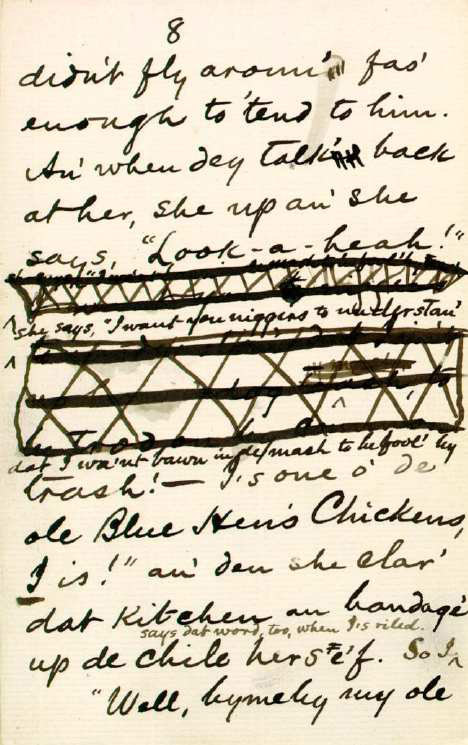 8
didn't fly aroun' fas'
enough to 'tend to him.
An' when dey talk' back
at her, she up an' she
says, "Look-a-heah!"
she says, "I want you niggers to understan'
dat I wa'nt bawn in de mash to be fool' by
trash! — I's one o' de
ole Blue Hen's Chickens,
I is!" an' den she clar'
dat kitchen an bandage'
says dat word, too, when I's riled.
up de chile herse'f. So I
"Well, bymeby my ole